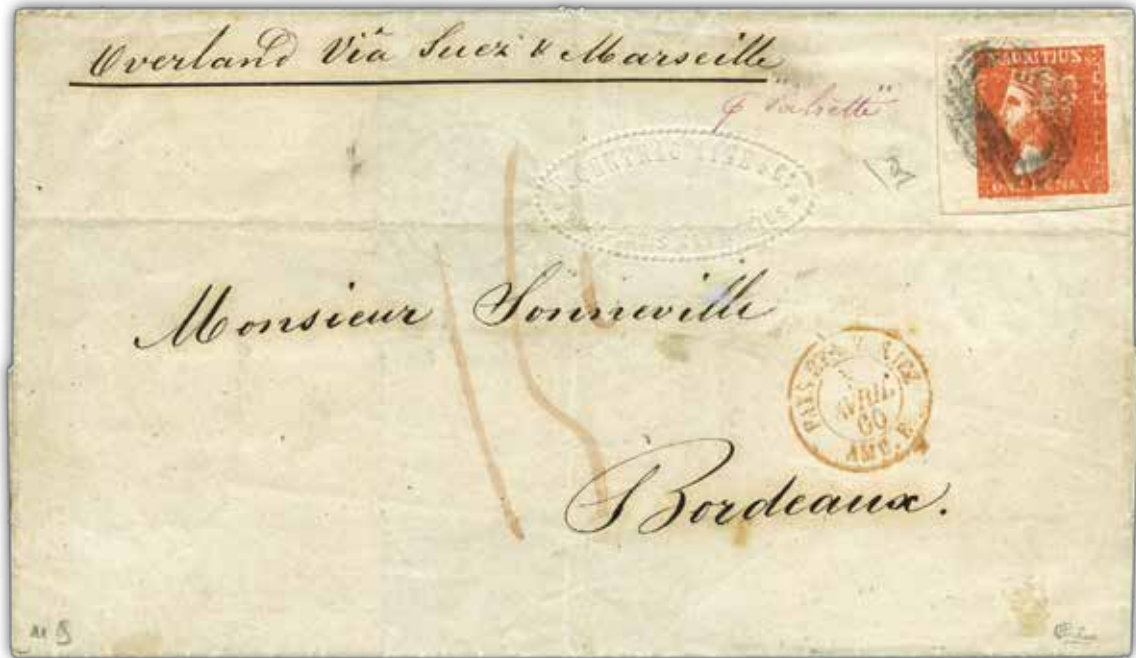 Overland Via Suez & Marseille
"Valsette"
MAURITIUS
ONE PENNY
Monsieur Sonneville
PAYS ETR. V. SUEZ
AVRIL
60
AMB.
Bordeaux.
15